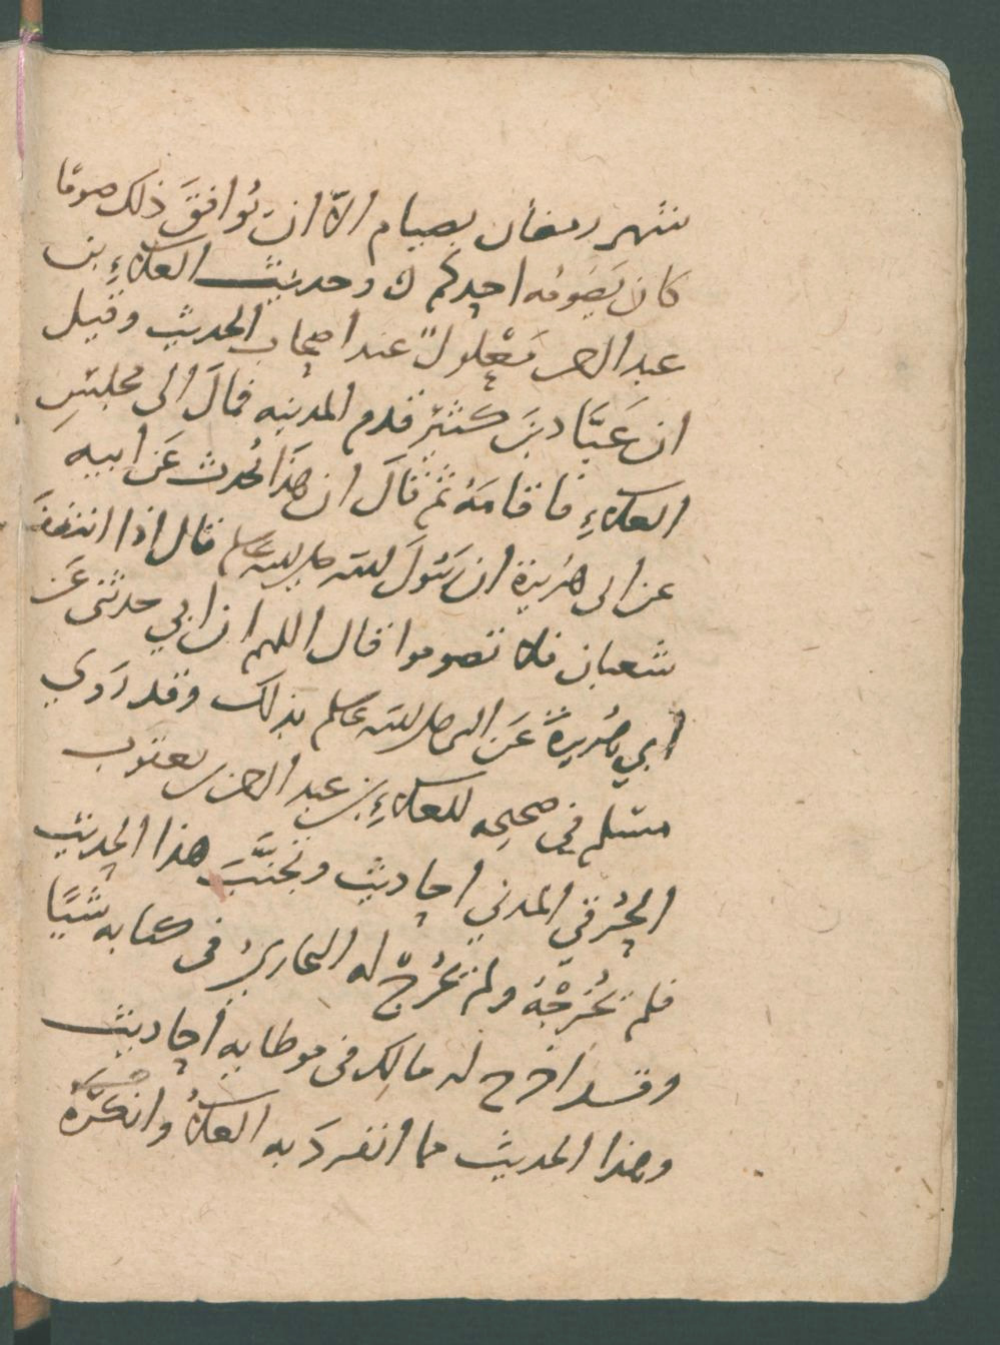 شهر رمضان بصيام الاّ ان يُوافقَ ذلك صومًا
كان يَصُومُه احدكم وحديث العلاءِ بن
عبد الرحمن مَعْلولٌ عند اصحاب الحديث وقيل
ان عَبَّاد بنَ كثيرٍ قدم المدينه فمالَ الى مجلسِ
العلاءِ فاقامَهُ ثم قالَ ان هذَا يُحدث عَن ابيه
عن ابى هُرَيْرة ان رَسُولَ الله صلى الله عليه وسلم قال اذا انتصفَ
شعبان فلا تصوموا فقال اللهم ان ابي حدثنى عَن
ابي هُرَيرةَ عَن النبى صلى الله عليه وسلم بذلك وقد رَوَي
مسلم في صحيحِه للعلاءِ بن عبد الرحمن بن يعقوب
الحُرَقي المدني احاديث وتجنَّبَ هذا الحديث
فلم يُخْرجْهُ ولم يُخرّجْ له البخاريُ فى كتابه شيًا
وقد اخرج له مالِك فى موطايه أحاديث
وهذا الحديث مما انفردَ به العلاءُ وانكرَهُ